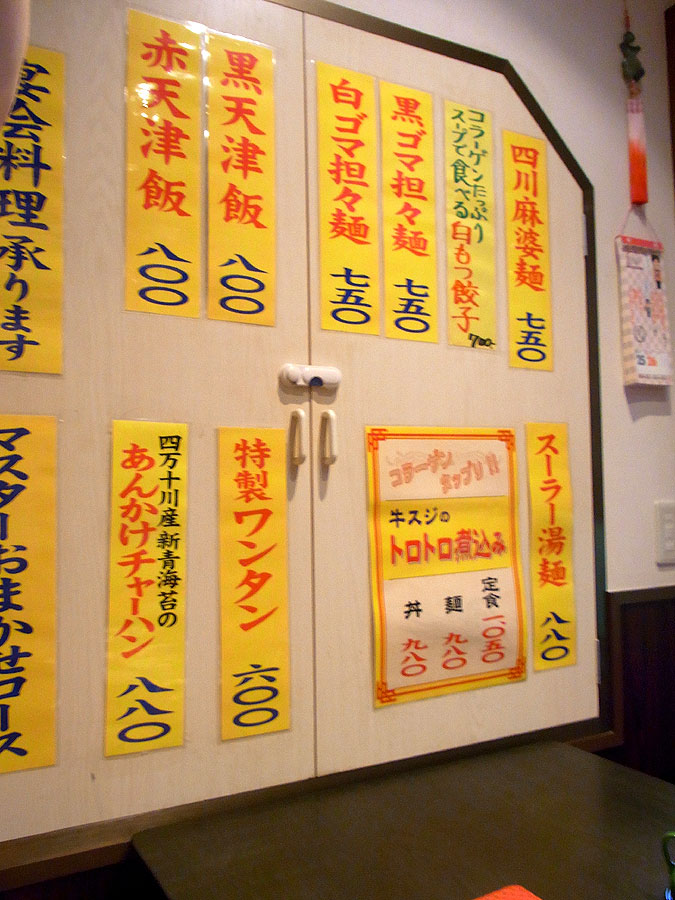 四川麻婆麺 七五〇
コラーゲンたっぷり
スープで食べる
白もつ餃子 700-
黒ゴマ担々麺 七五〇
白ゴマ担々麺 七五〇
黒天津飯 八〇〇
赤天津飯 八〇〇
宴会料理承ります
スーラー湯麺 八八〇
コラーゲン
タップリ!!
牛スジの
トロトロ煮込み
定食 一、〇五〇
麺 九八〇
丼 九八〇
特製ワンタン 六〇〇
四万十川産新青海苔の
あんかけチャーハン 八八〇
マスターおまかせコース
25 26